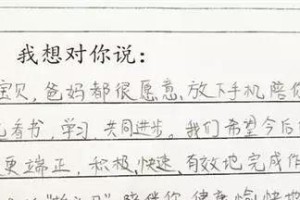 我想对你说:
宝贝,爸妈都很愿意放下手机陪你
看书,学习,共同进步。我们希望今后
更端正,积极、快速、有效地完成作
陪伴你健康愉快地